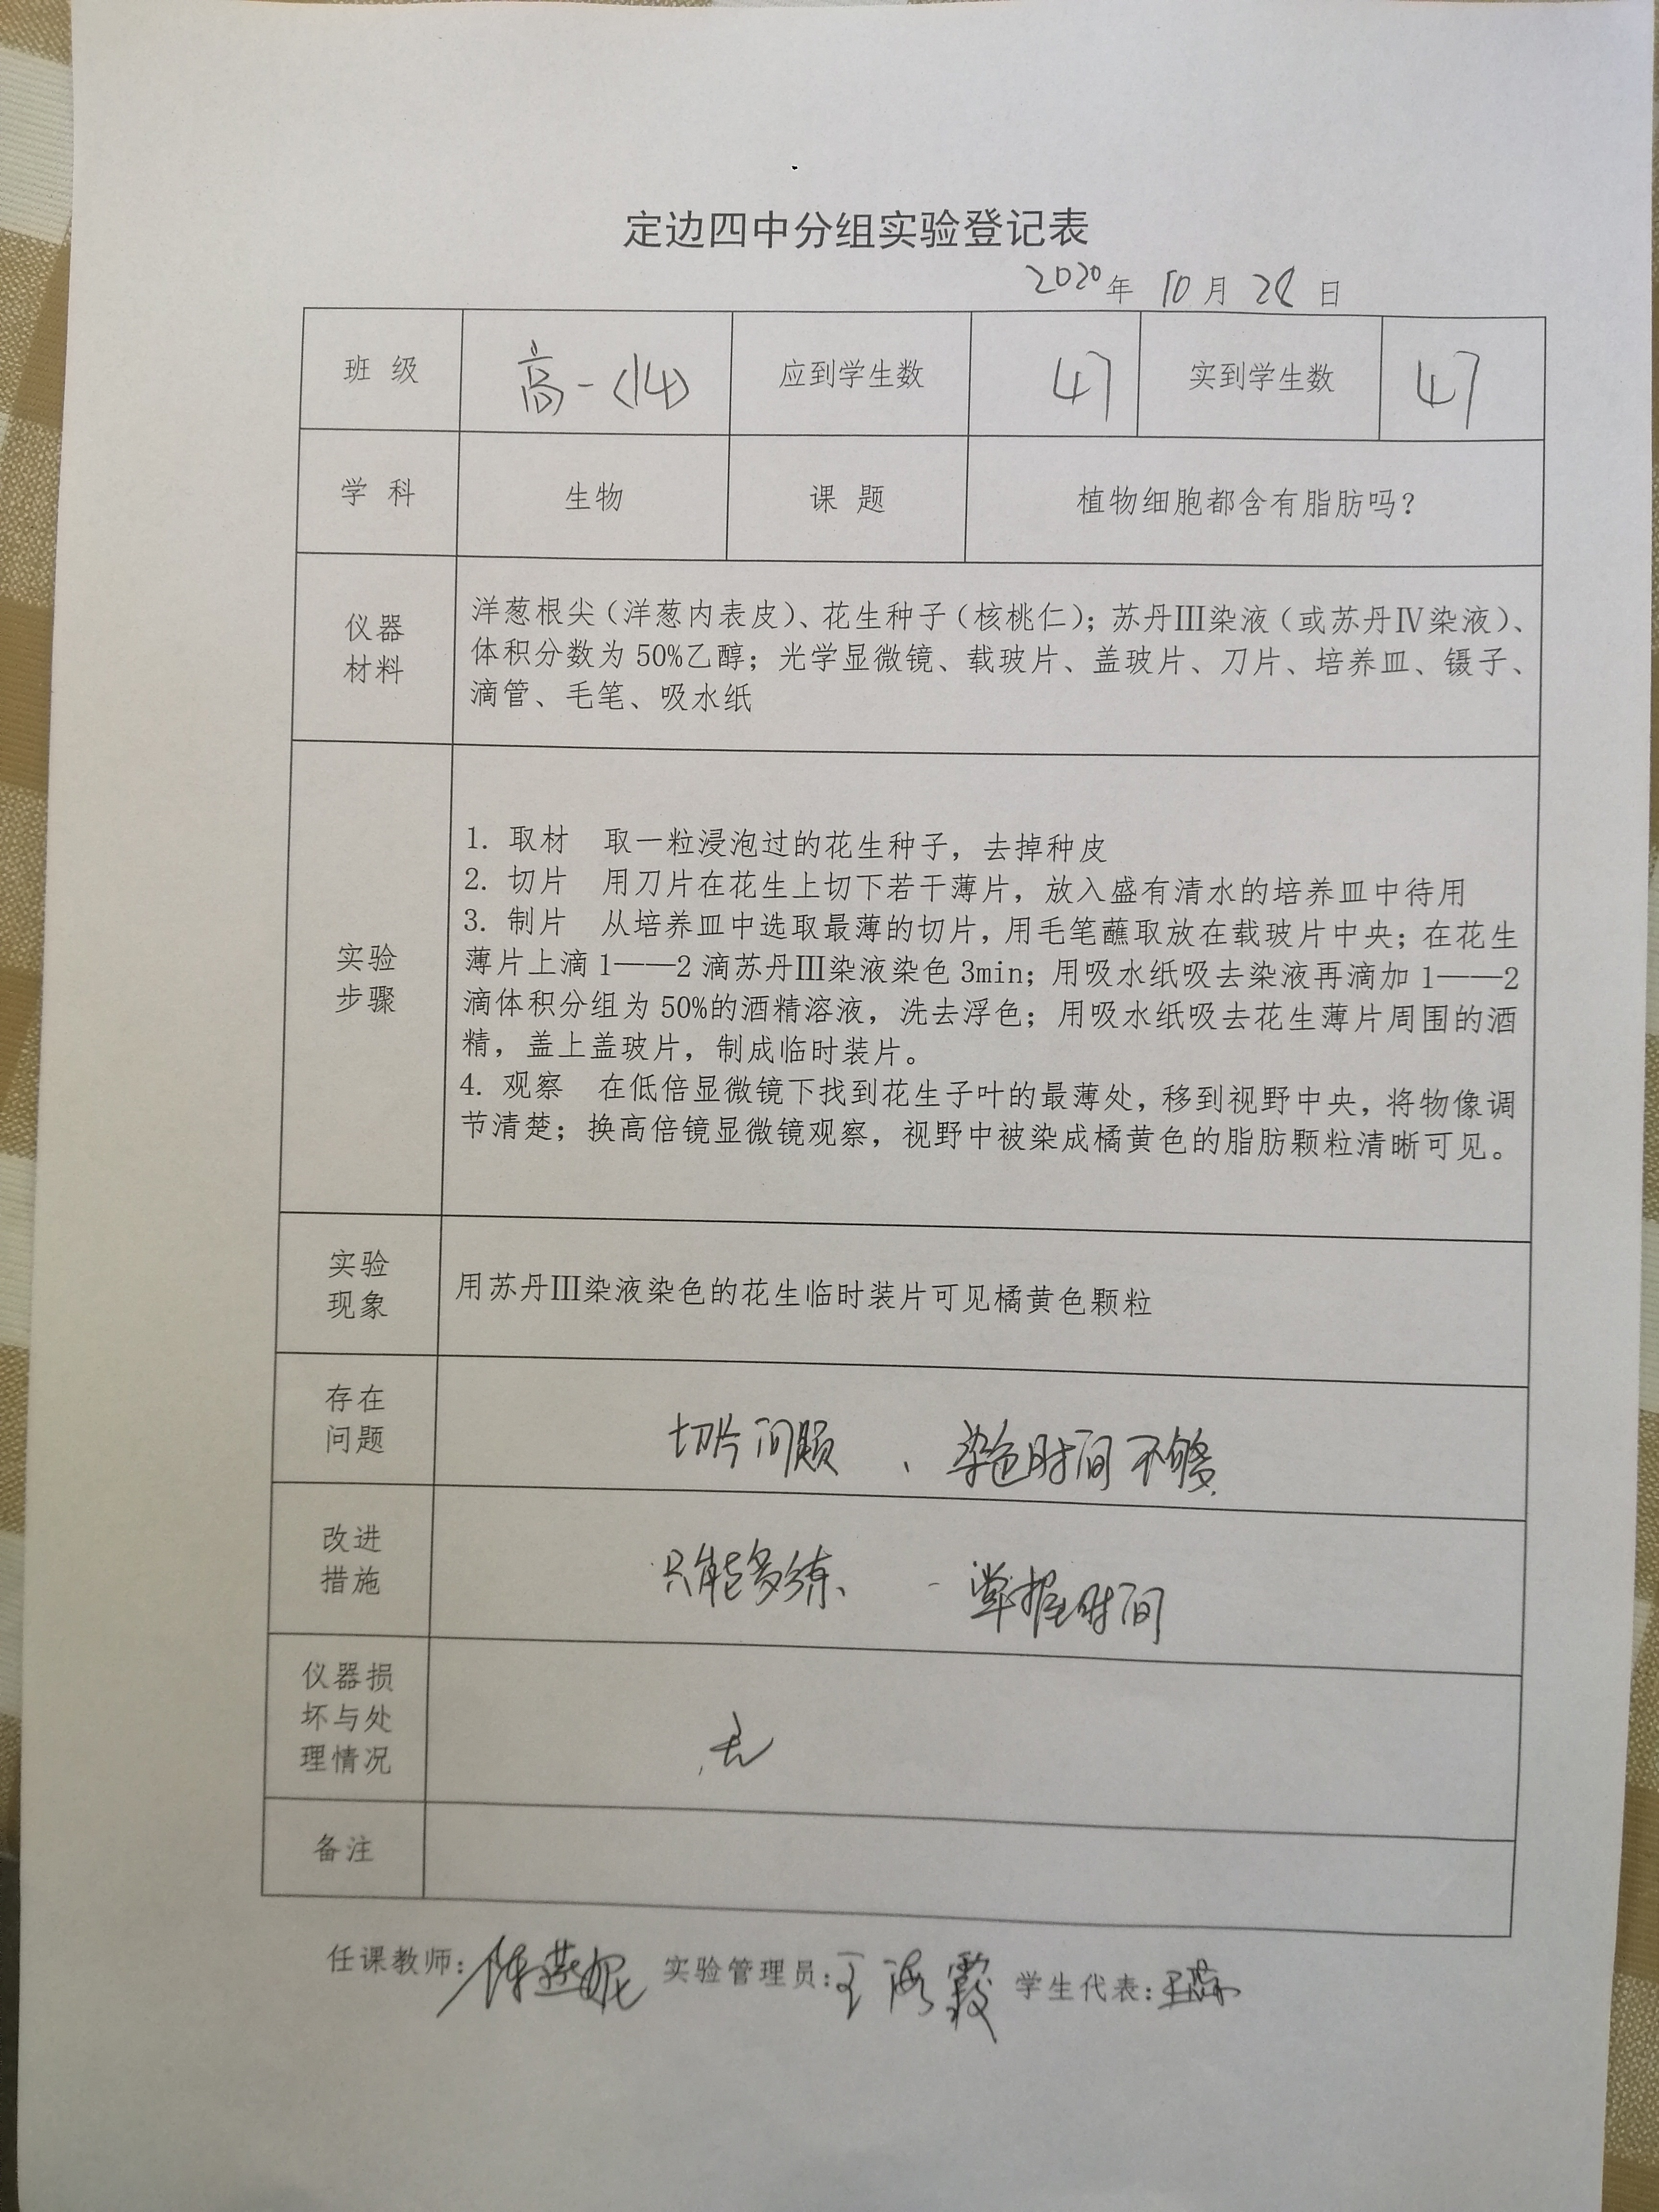 定边四中分组实验登记表
2020年 10月 28日
班 级 高一(14) 应到学生数 47 实到学生数 47
学 科 生物 课 题 植物细胞都含有脂肪吗?
仪器
材料
洋葱根尖(洋葱内表皮)、花生种子(核桃仁);苏丹Ⅲ染液(或苏丹Ⅳ染液)、
体积分数为50%乙醇;光学显微镜、载玻片、盖玻片、刀片、培养皿、镊子、
滴管、毛笔、吸水纸
实验
步骤
1. 取材 取一粒浸泡过的花生种子,去掉种皮
2. 切片 用刀片在花生上切下若干薄片,放入盛有清水的培养皿中待用
3. 制片 从培养皿中选取最薄的切片,用毛笔蘸取放在载玻片中央;在花生
薄片上滴1——2滴苏丹Ⅲ染液染色3min;用吸水纸吸去染液再滴加1——2
滴体积分组为50%的酒精溶液,洗去浮色;用吸水纸吸去花生薄片周围的酒
精,盖上盖玻片,制成临时装片。
4. 观察 在低倍显微镜下找到花生子叶的最薄处,移到视野中央,将物像调
节清楚;换高倍镜显微镜观察,视野中被染成橘黄色的脂肪颗粒清晰可见。
实验
现象
用苏丹Ⅲ染液染色的花生临时装片可见橘黄色颗粒
存在
问题
切片问题 、染色时间不够.
改进
措施
只能多练、 掌握时间
仪器损
坏与处
理情况
无
备注
任课教师:陈燕妮 实验管理员:王海霞 学生代表: